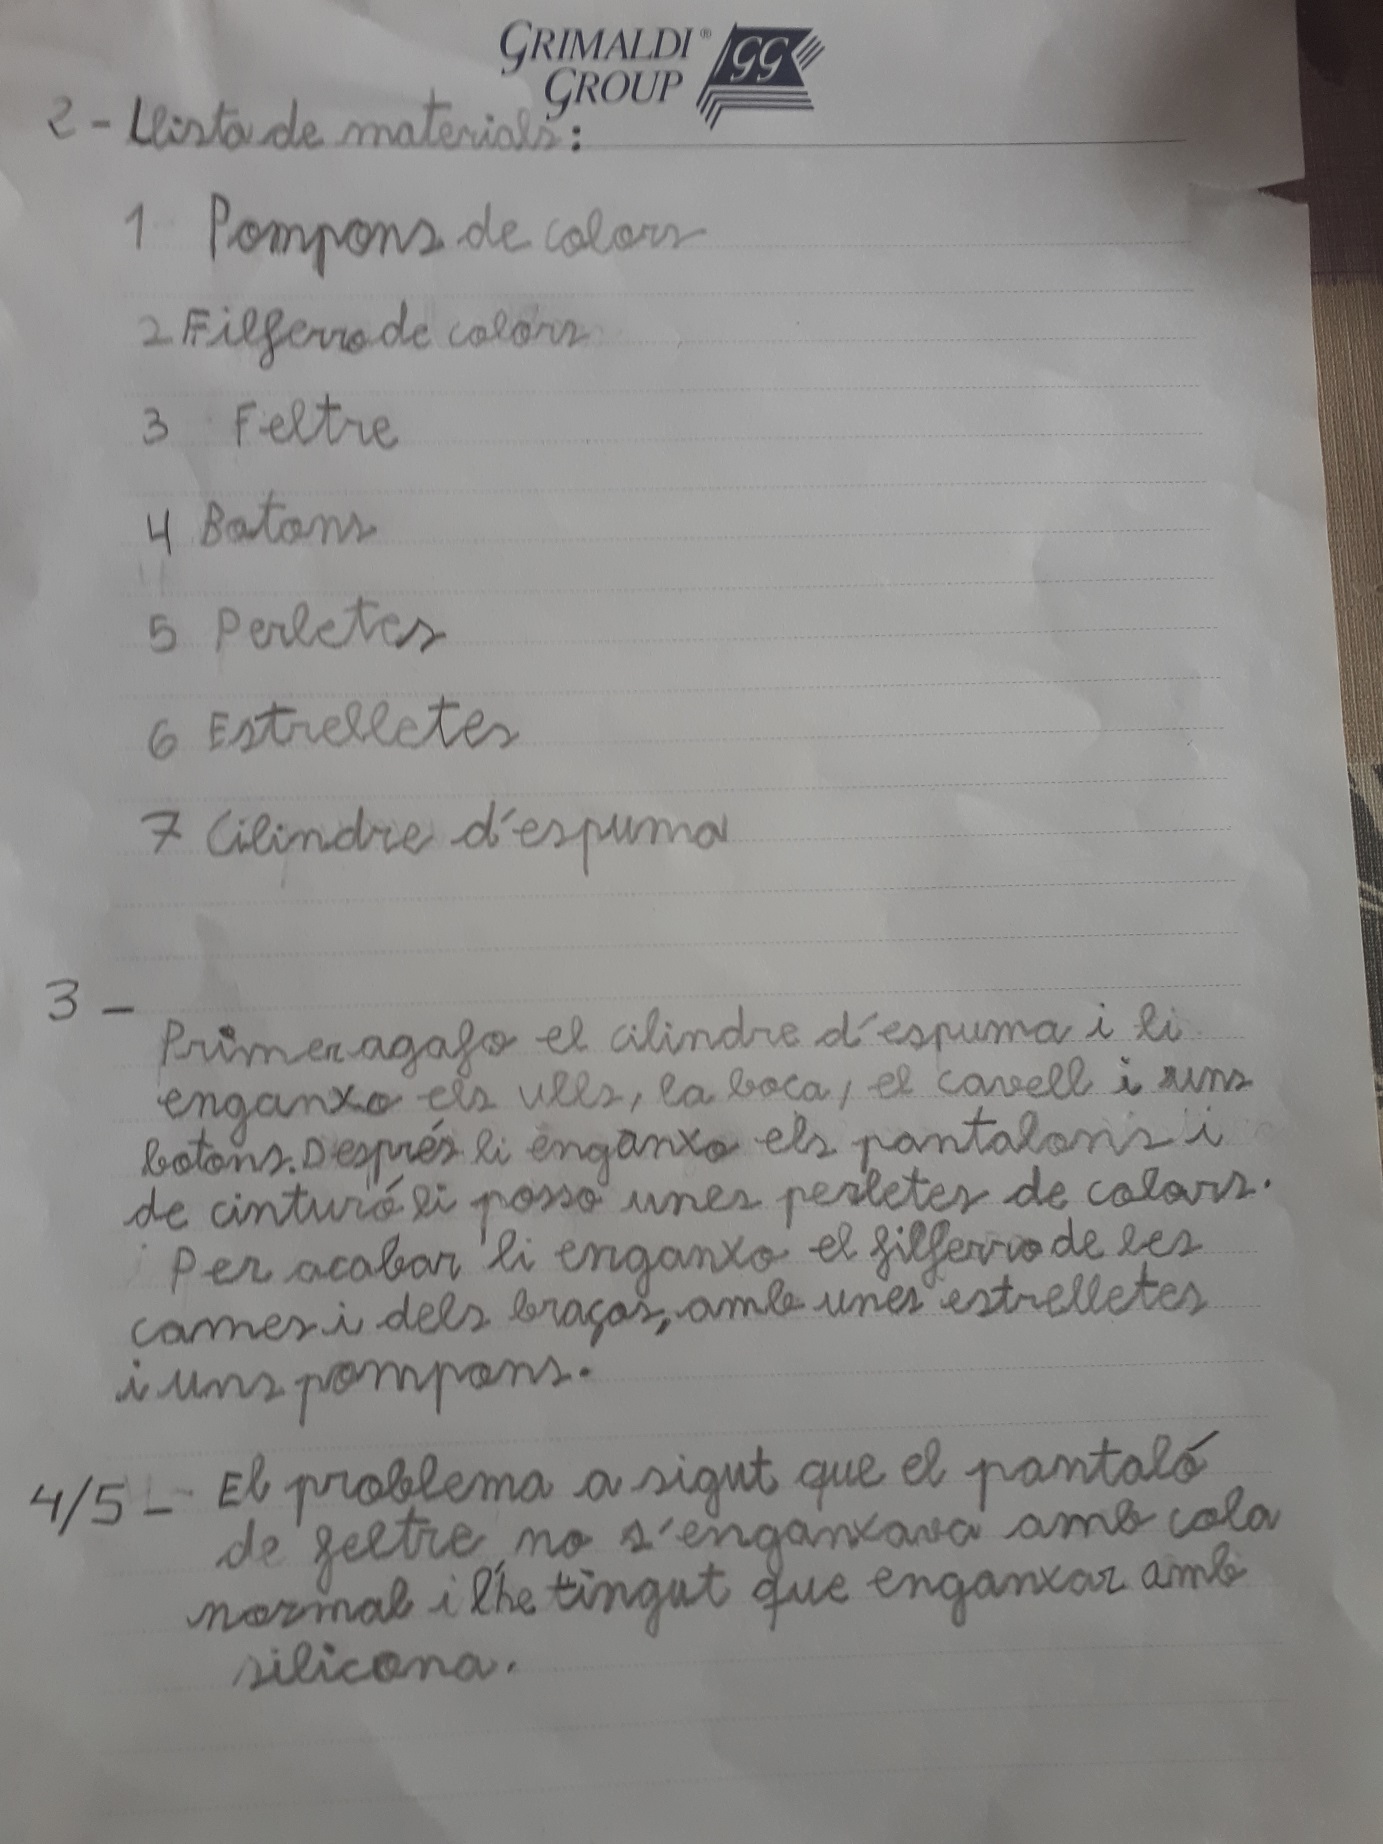 GRIMALDI®
GROUP
GG
2 - Llista de materials:
1 Pompons de colors
2 Filferro de colors
3 Feltre
4 Botons
5 Perletes
6 Estrelletes
7 Cilindre d'espuma
3 -
Primer agafo el cilindre d'espuma i li
enganxo els ulls, la boca, el cavell i uns
botons. Després li enganxo els pantalons i
de cinturó li posso unes perletes de colors.
Per acabar li enganxo el filferro de les
cames i dels braços, amb unes estrelletes
i uns pompons.
4/5 - El problema a sigut que el pantaló
de feltre, no s'enganxava amb cola
normal i l'he tingut que enganxar amb
silicona.